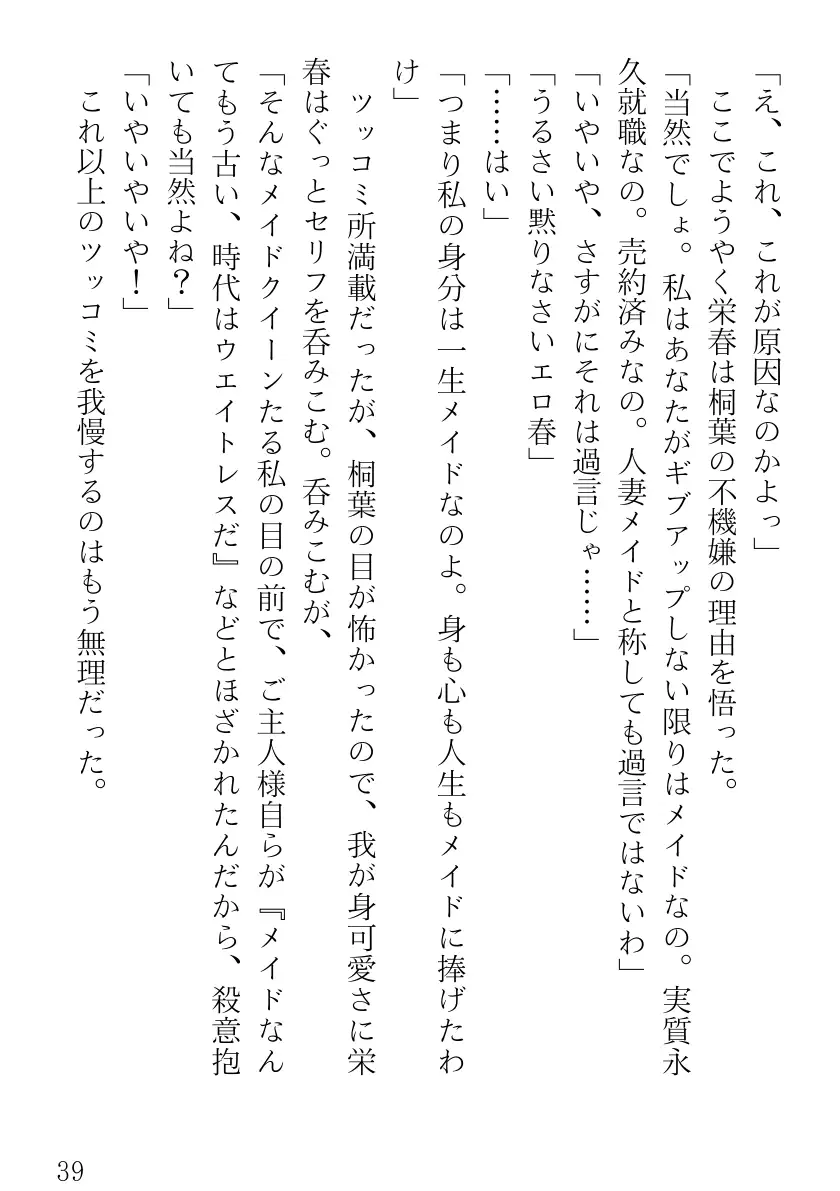 「え、これ、これが原因なのかよっ」
　ここでようやく栄春は桐葉の不機嫌の理由を悟った。
「当然でしょ。私はあなたがギブアップしない限りはメイドなの。実質永
久就職なの。売約済みなの。人妻メイドと称しても過言ではないわ」
「いやいや、さすがにそれは過言じゃ……」
「うるさい黙りなさいエロ春」
「……はい」
「つまり私の身分は一生メイドなのよ。身も心も人生もメイドに捧げたわ
け」
　ツッコミ所満載だったが、桐葉の目が怖かったので、我が身可愛さに栄
春はぐっとセリフを呑みこむ。呑みこむが、
「そんなメイドクイーンたる私の目の前で、ご主人様自らが『メイドなん
てもう古い、時代はウェイトレスだ』などとほざかれたんだから、殺意抱
いても当然よね？」
「いやいやいや！」
　これ以上のツッコミを我慢するのはもう無理だった。
39